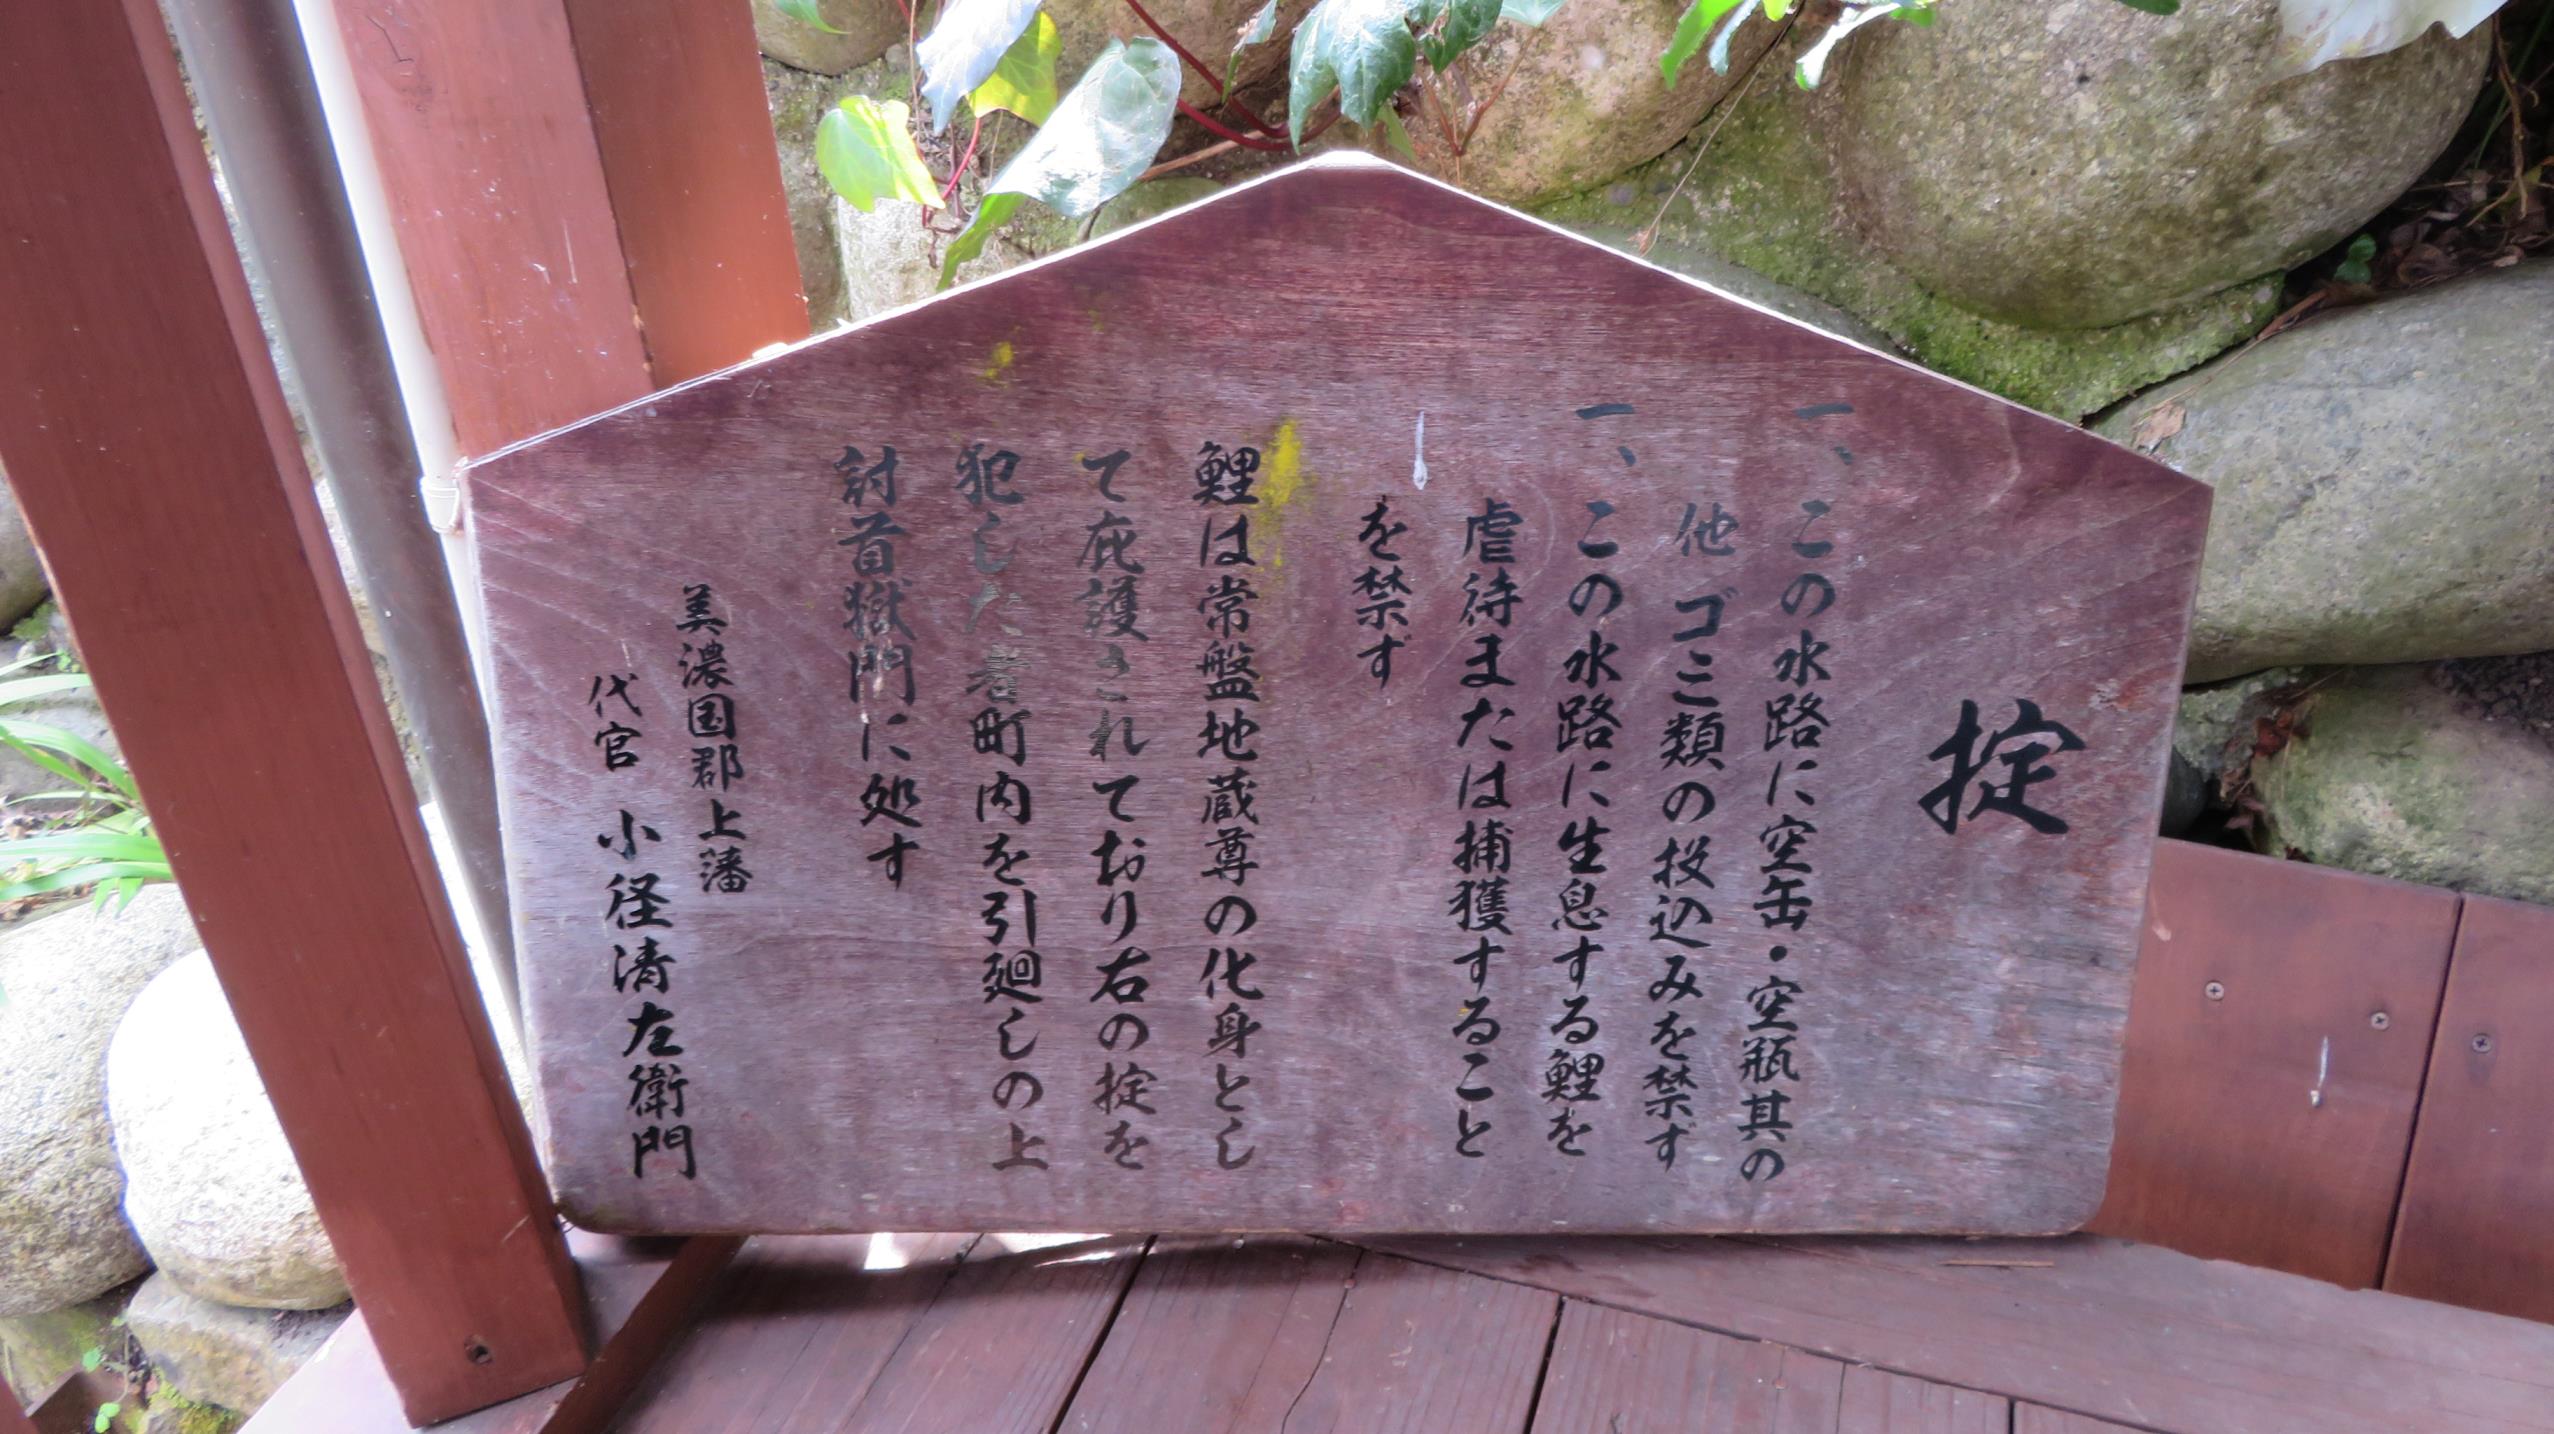 掟
一、この水路に空缶・空瓶其の
他ゴミ類の投込みを禁ず
一、この水路に生息する鯉を
虐待または捕獲すること
を禁ず
鯉は常盤地蔵尊の化身とし
て庇護されており右の掟を
犯した者町内を引廻しの上
討首獄門に処す
美濃国郡上藩
代官 小径清左衛門